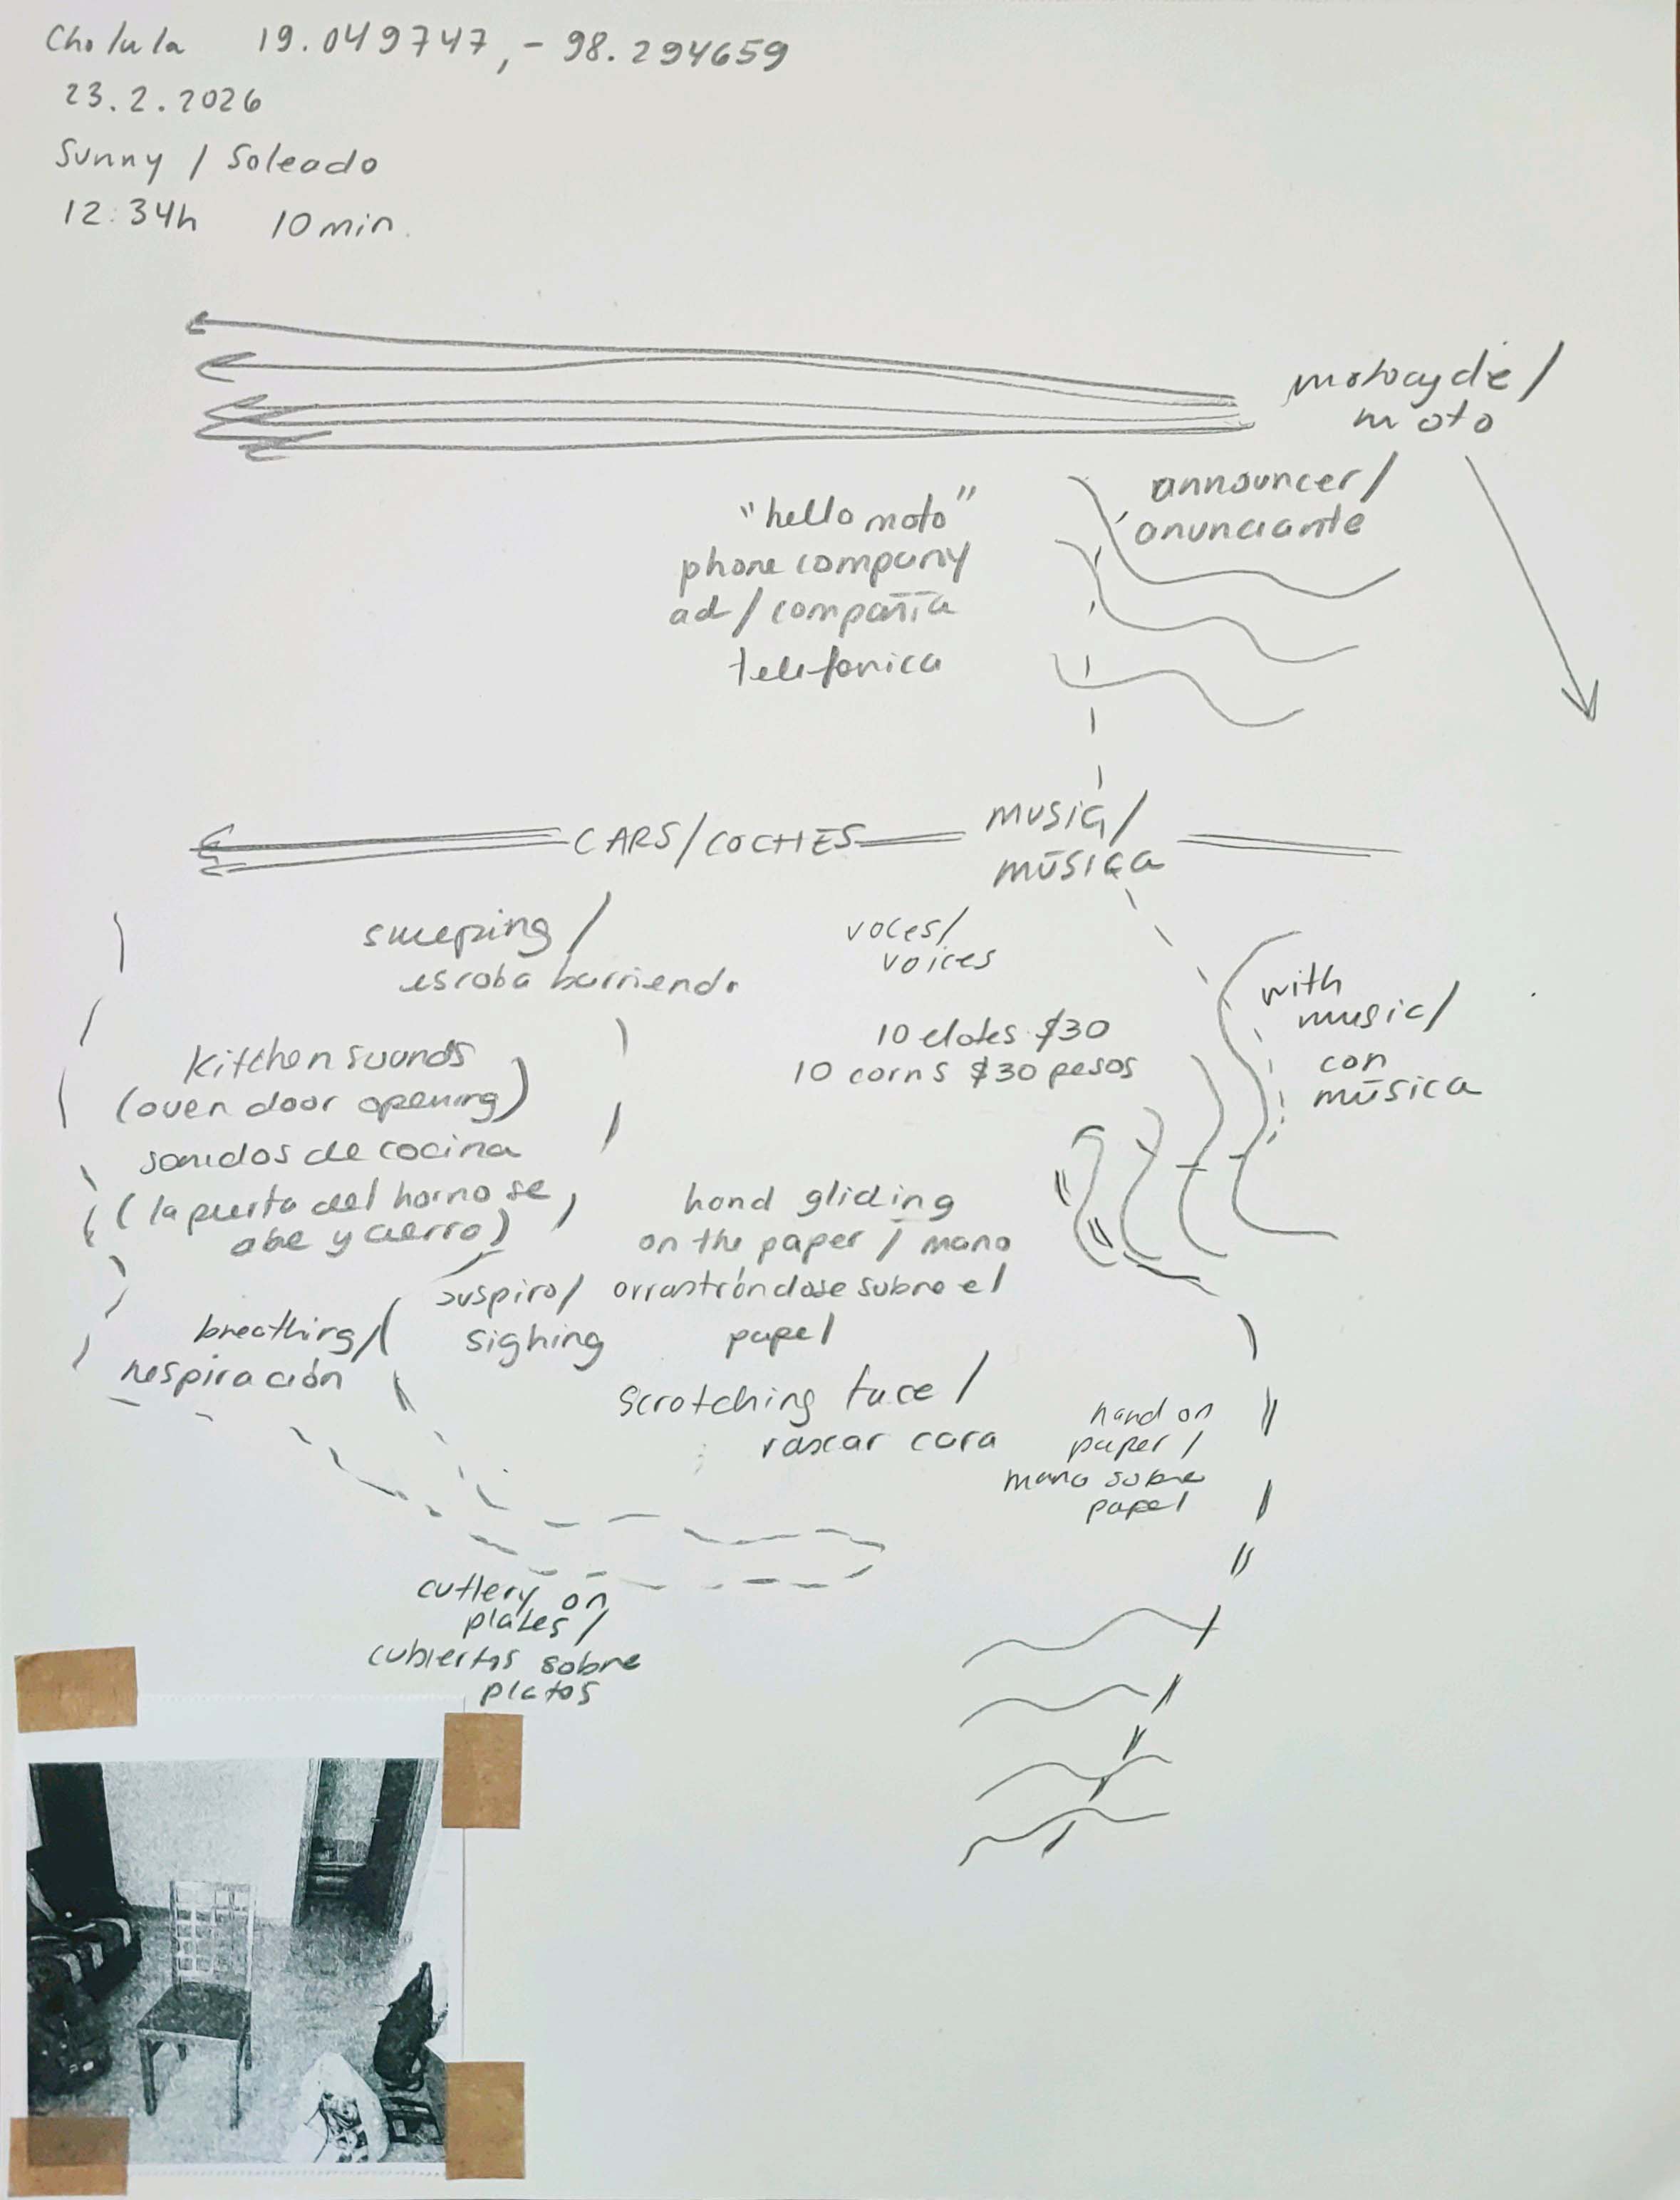 Cholula 19.049747, - 98.294659
23.2.2026
Sunny / Soleado
12:34h 10 min.
motocycle /
moto
announcer /
anunciante
"hello moto"
phone company
ad / compañia
telefonica
CARS/COCHES
music /
música
sweeping /
escoba barriendo
voces/
voices
with
music /
con
música
10 elotes $30
10 corns $30 pesos
kitchen sounds
(oven door opening)
sonidos de cocina
(la puerta del horno se
abe y cierro)
hand gliding
on the paper / mano
arrastrándose sobre el
papel
suspiro/
sighing
breathing /
respiración
scratching face /
rascar cara
hand on
paper /
mano sobre
papel
cutlery on
plates /
cubiertos sobre
platos